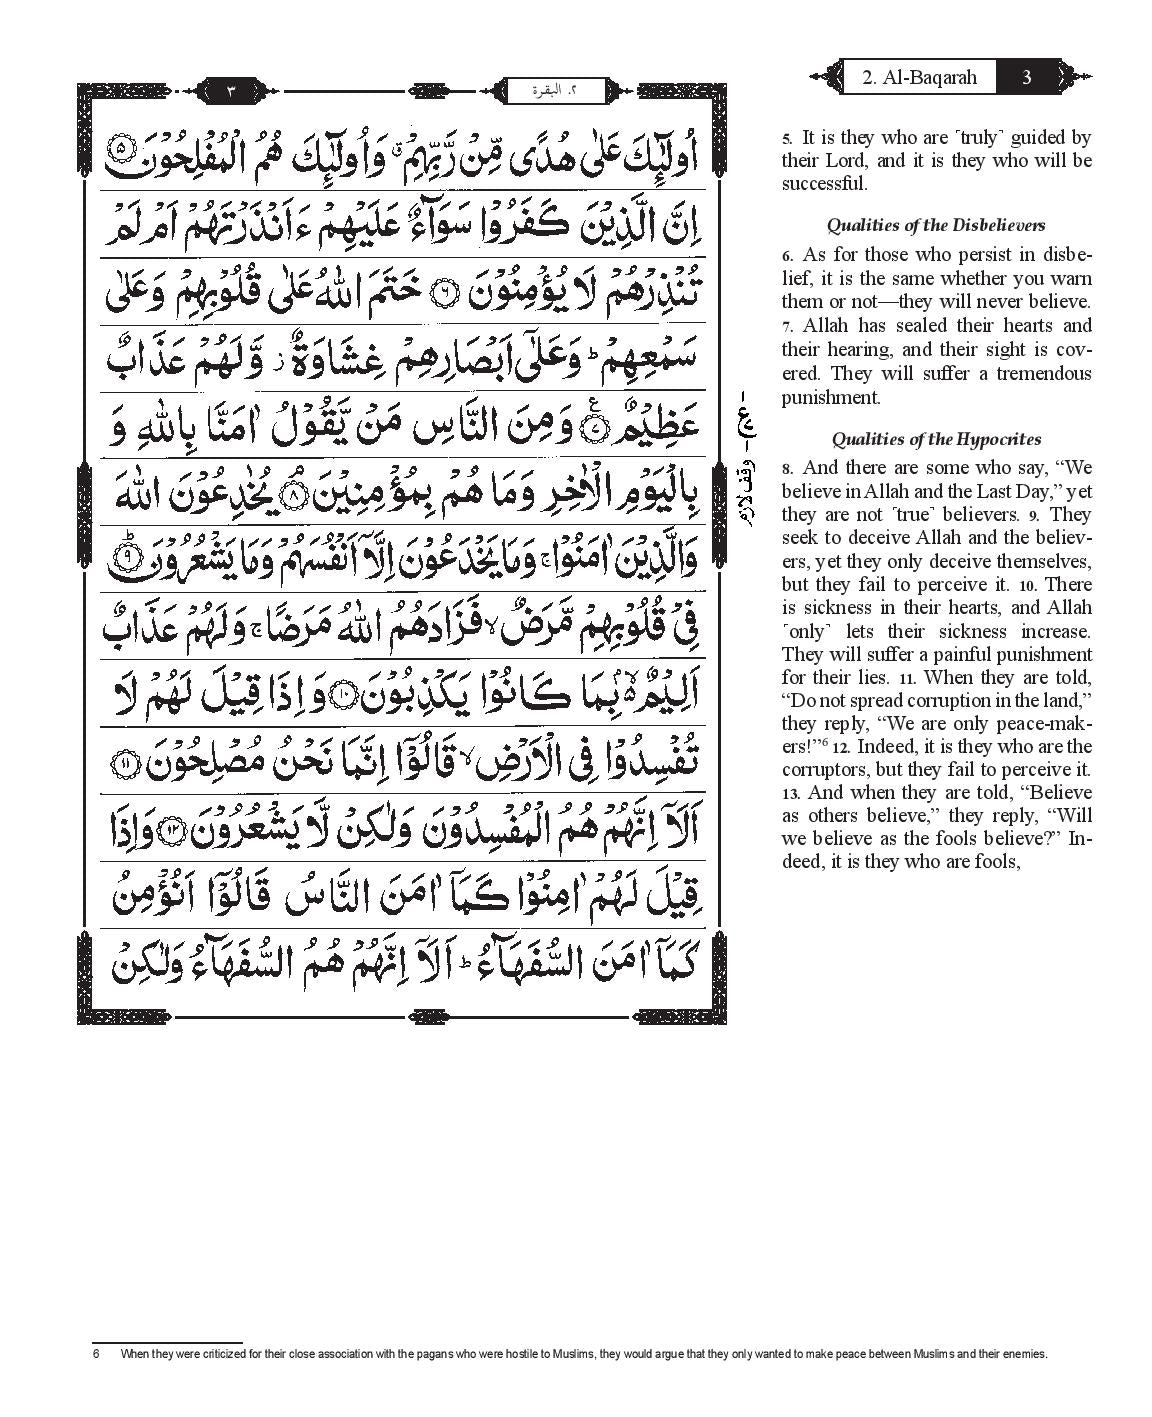 ٣
٢. البقرة
2. Al-Baqarah 3
اُولٰٓئِكَ عَلٰى هُدًى مِّنْ رَّبِّهِمْ ۗ وَاُولٰٓئِكَ هُمُ الْمُفْلِحُوْنَ ۝٥
اِنَّ الَّذِيْنَ كَفَرُوْا سَوَآءٌ عَلَيْهِمْ ءَاَنْذَرْتَهُمْ اَمْ لَمْ
تُنْذِرْهُمْ لَا يُؤْمِنُوْنَ ۝٦ خَتَمَ اللّٰهُ عَلٰى قُلُوْبِهِمْ وَعَلٰى
سَمْعِهِمْ ؕ وَعَلٰٓى اَبْصَارِهِمْ غِشَاوَةٌ ز وَّلَهُمْ عَذَابٌ
عَظِيْمٌ ۝٧ ع وَمِنَ النَّاسِ مَنْ يَّقُوْلُ اٰمَنَّا بِاللّٰهِ وَ
بِالْيَوْمِ الْاٰخِرِ وَمَا هُمْ بِمُؤْمِنِيْنَ ۝٨ۘ يُخٰدِعُوْنَ اللّٰهَ
وَالَّذِيْنَ اٰمَنُوْا ۚ وَمَا يَخْدَعُوْنَ اِلَّآ اَنْفُسَهُمْ وَمَا يَشْعُرُوْنَ ۝٩ؕ
فِيْ قُلُوْبِهِمْ مَّرَضٌ ۙ فَزَادَهُمُ اللّٰهُ مَرَضًا ۚ وَلَهُمْ عَذَابٌ
اَلِيْمٌ ۢ ۙ بِمَا كَانُوْا يَكْذِبُوْنَ ۝١٠ وَاِذَا قِيْلَ لَهُمْ لَا
تُفْسِدُوْا فِى الْاَرْضِ ۙ قَالُوْٓا اِنَّمَا نَحْنُ مُصْلِحُوْنَ ۝١١
اَلَآ اِنَّهُمْ هُمُ الْمُفْسِدُوْنَ وَلٰكِنْ لَّا يَشْعُرُوْنَ ۝١٢ وَاِذَا
قِيْلَ لَهُمْ اٰمِنُوْا كَمَآ اٰمَنَ النَّاسُ قَالُوْٓا اَنُؤْمِنُ
كَمَآ اٰمَنَ السُّفَهَآءُ ؕ اَلَآ اِنَّهُمْ هُمُ السُّفَهَآءُ وَلٰكِنْ
ع وقف لازم
5. It is they who are ˹truly˺ guided by
their Lord, and it is they who will be
successful.
Qualities of the Disbelievers
6. As for those who persist in disbe-
lief, it is the same whether you warn
them or not—they will never believe.
7. Allah has sealed their hearts and
their hearing, and their sight is cov-
ered. They will suffer a tremendous
punishment.
Qualities of the Hypocrites
8. And there are some who say, “We
believe in Allah and the Last Day,” yet
they are not ˹true˺ believers. 9. They
seek to deceive Allah and the believ-
ers, yet they only deceive themselves,
but they fail to perceive it. 10. There
is sickness in their hearts, and Allah
˹only˺ lets their sickness increase.
They will suffer a painful punishment
for their lies. 11. When they are told,
“Do not spread corruption in the land,”
they reply, “We are only peace-mak-
ers!”6 12. Indeed, it is they who are the
corruptors, but they fail to perceive it.
13. And when they are told, “Believe
as others believe,” they reply, “Will
we believe as the fools believe?” In-
deed, it is they who are fools,
6 When they were criticized for their close association with the pagans who were hostile to Muslims, they would argue that they only wanted to make peace between Muslims and their enemies.